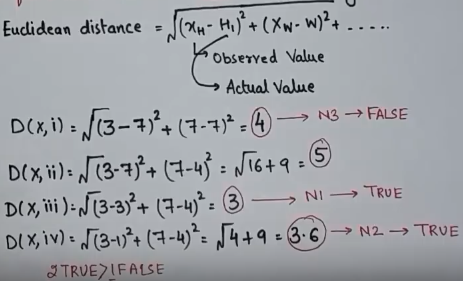 Euclidean distance = √(x_H - H_1)² + (x_W - W)² + .....
Observed Value
Actual Value
D(x,i) = √(3-7)² + (7-7)² = 4 → N3 → FALSE
D(x,ii) = √(3-7)² + (7-4)² = √16+9 = 5
D(x,iii) = √(3-3)² + (7-4)² = 3 → N1 → TRUE
D(x,iv) = √(3-1)² + (7-4)² = √4+9 = 3.6 → N2 → TRUE
2TRUE>1FALSE